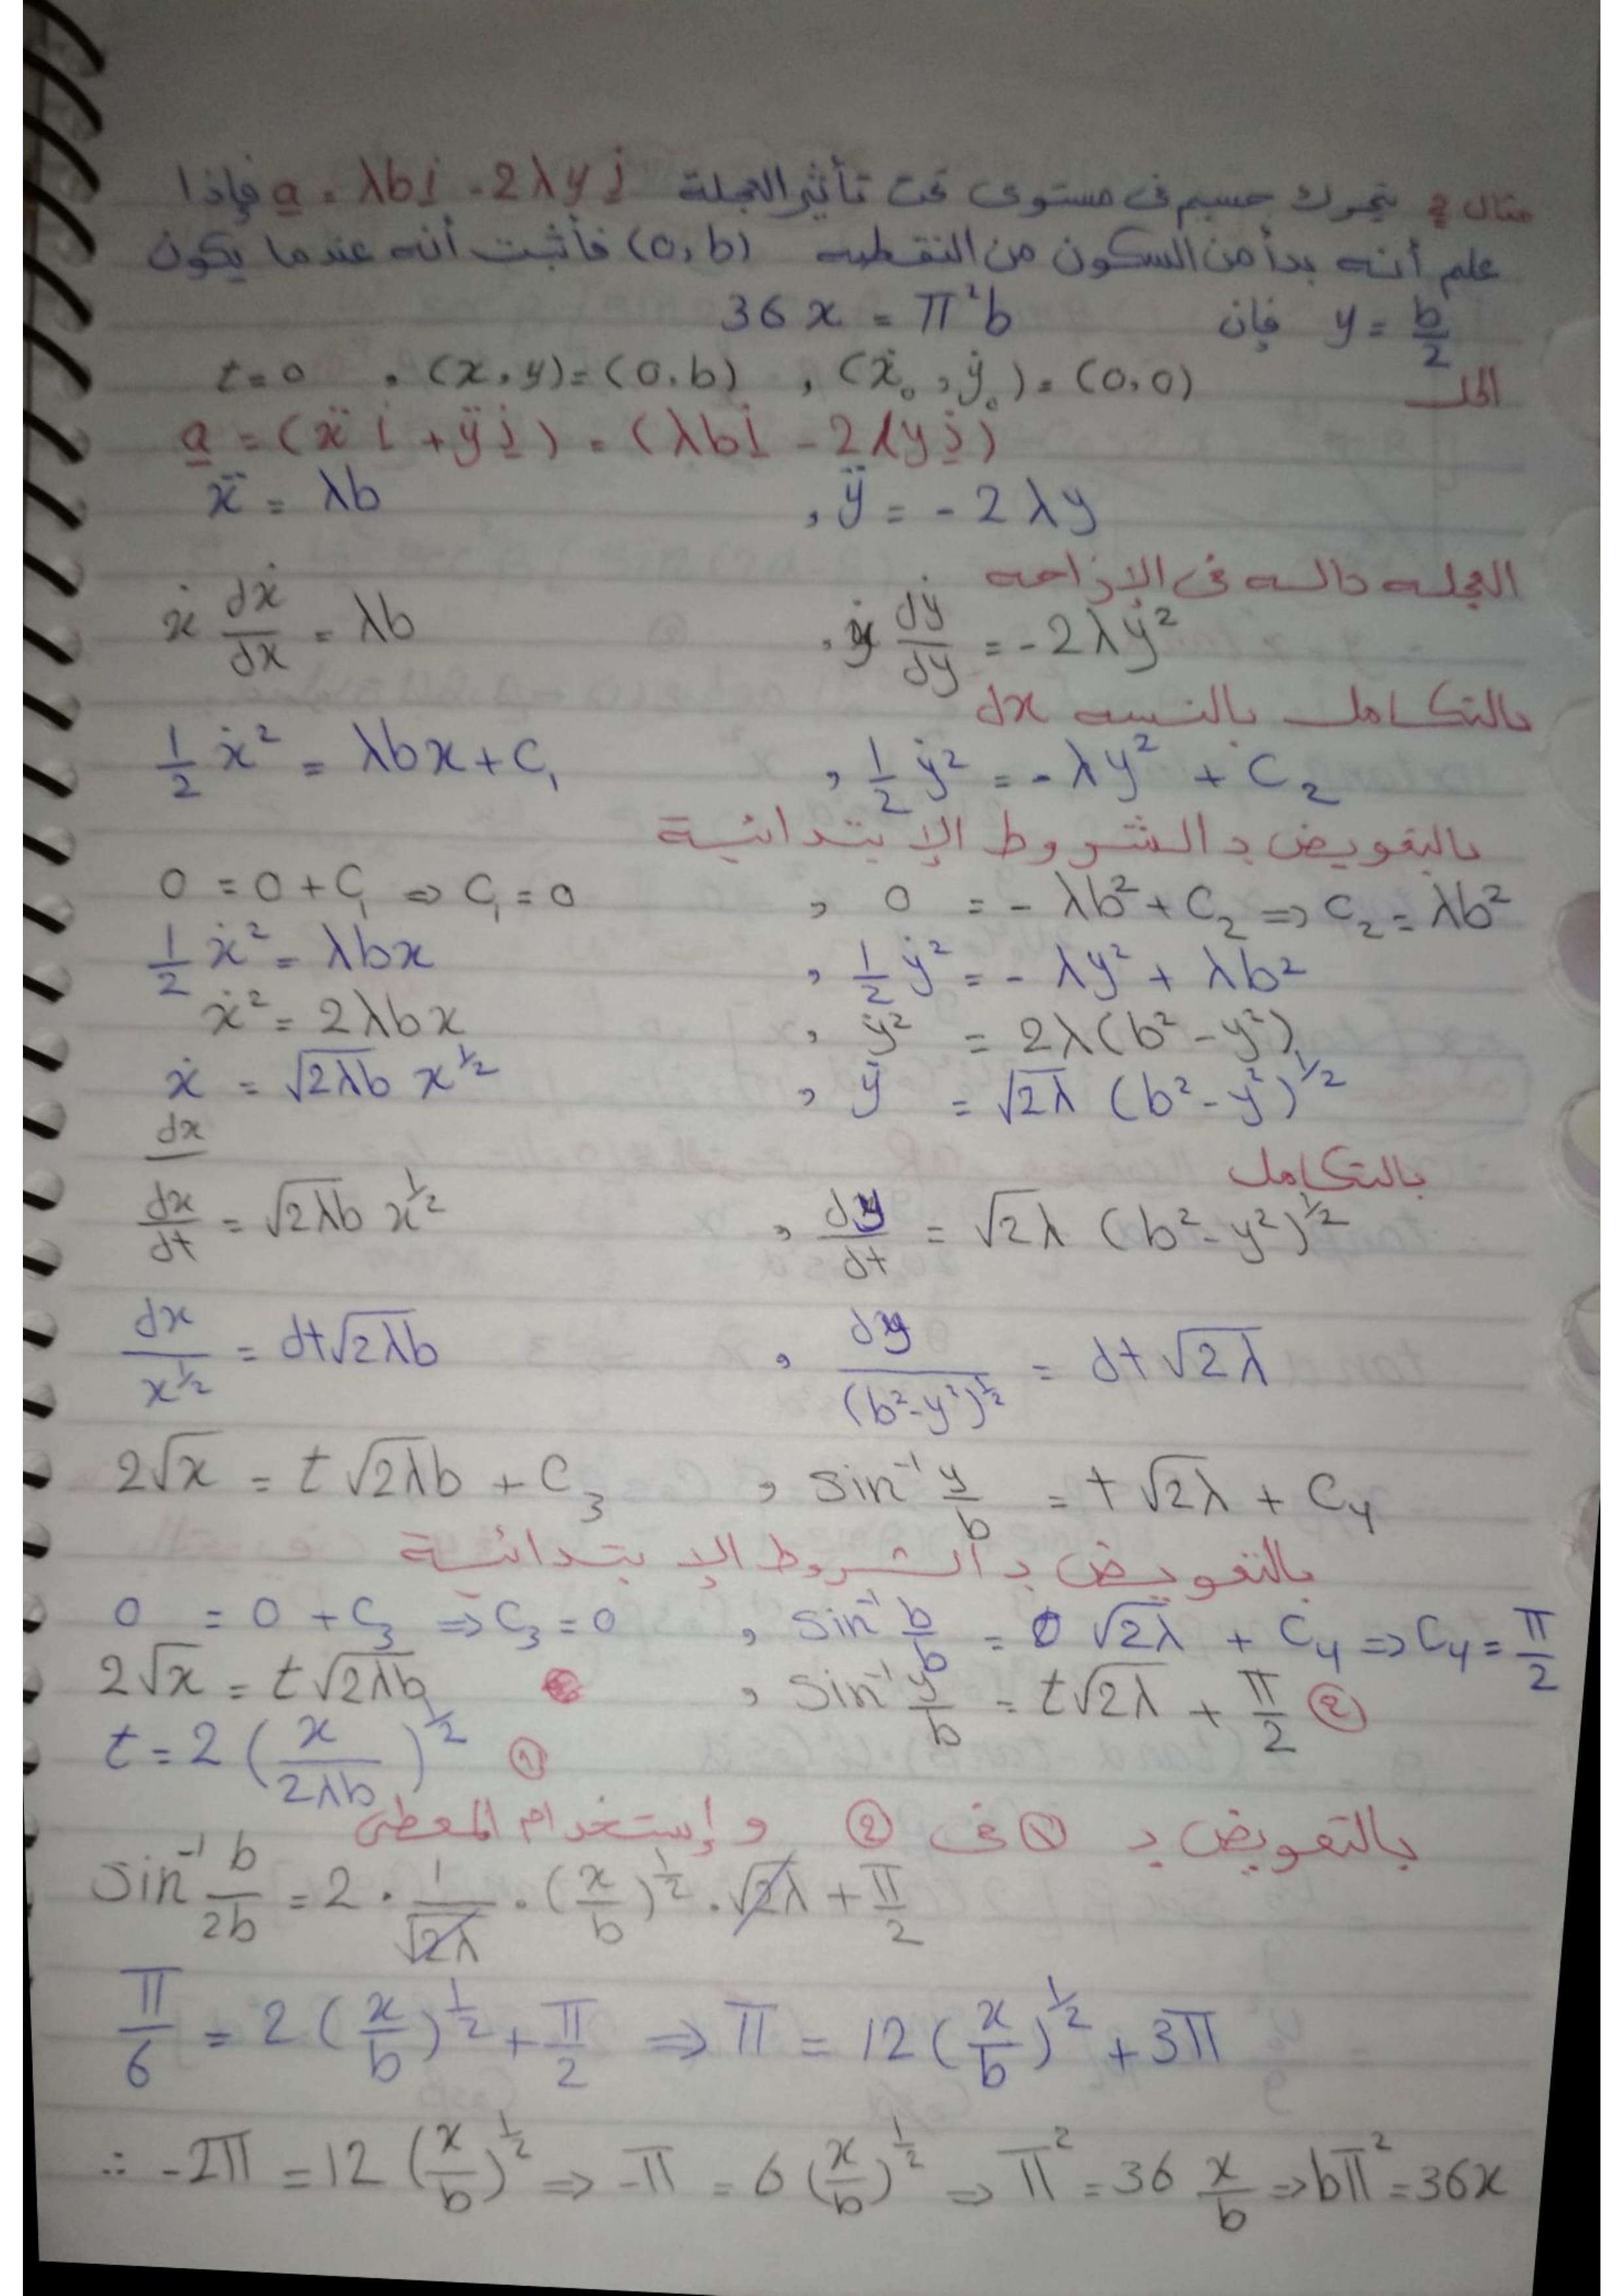 مثال 2 يتحرك جسيم فى مستوى تحت تأثير العجلة a = λb i - 2λy j فإذا
علم أنه بدأ من السكون من النقطه (0,b) فأثبت أنه عندما يكون
y = b/2 فإن 36x = π²b
الحل t=0 , (x,y)=(0,b) , (ẋ₀,ẏ₀)=(0,0)
a = (ẍ i + ÿ j) = (λb i - 2λy j)
ẍ = λb , ÿ = -2λy
العجله داله فى الإزاحه
ẋ dẋ/dx = λb , ẏ dẏ/dy = -2λy²
بالتكامل بالنسبه dx
1/2 ẋ² = λbx + C₁ , 1/2 ẏ² = -λy² + C₂
بالتعويض بـ الشروط الإبتدائية
0 = 0 + C₁ ⇒ C₁ = 0 , 0 = -λb² + C₂ ⇒ C₂ = λb²
1/2 ẋ² = λbx , 1/2 ẏ² = -λy² + λb²
ẋ² = 2λbx , ẏ² = 2λ(b² - y²)
ẋ = √2λb x^1/2 , ẏ = √2λ (b² - y²)^1/2
dx
بالتكامل
dx/dt = √2λb x^1/2 , dy/dt = √2λ (b² - y²)^1/2
dx/x^1/2 = dt√2λb , dy/(b²-y²)^1/2 = dt√2λ
2√x = t√2λb + C₃ , sin⁻¹ y/b = t√2λ + C₄
بالتعويض بـ الشروط الإبتدائية
0 = 0 + C₃ ⇒ C₃ = 0 , sin⁻¹ b/b = 0 √2λ + C₄ ⇒ C₄ = π/2
2√x = t√2λb , sin⁻¹ y/b = t√2λ + π/2 ②
t = 2 (x/2λb)^1/2 ①
بالتعويض بـ ① فى ② و إستخدام المعطى
sin⁻¹ b/2b = 2 · 1/√2λ · (x/b)^1/2 · √2λ + π/2
π/6 = 2 (x/b)^1/2 + π/2 ⇒ π = 12 (x/b)^1/2 + 3π
∴ -2π = 12 (x/b)^1/2 ⇒ -π = 6 (x/b)^1/2 ⇒ π² = 36 x/b ⇒ bπ² = 36x